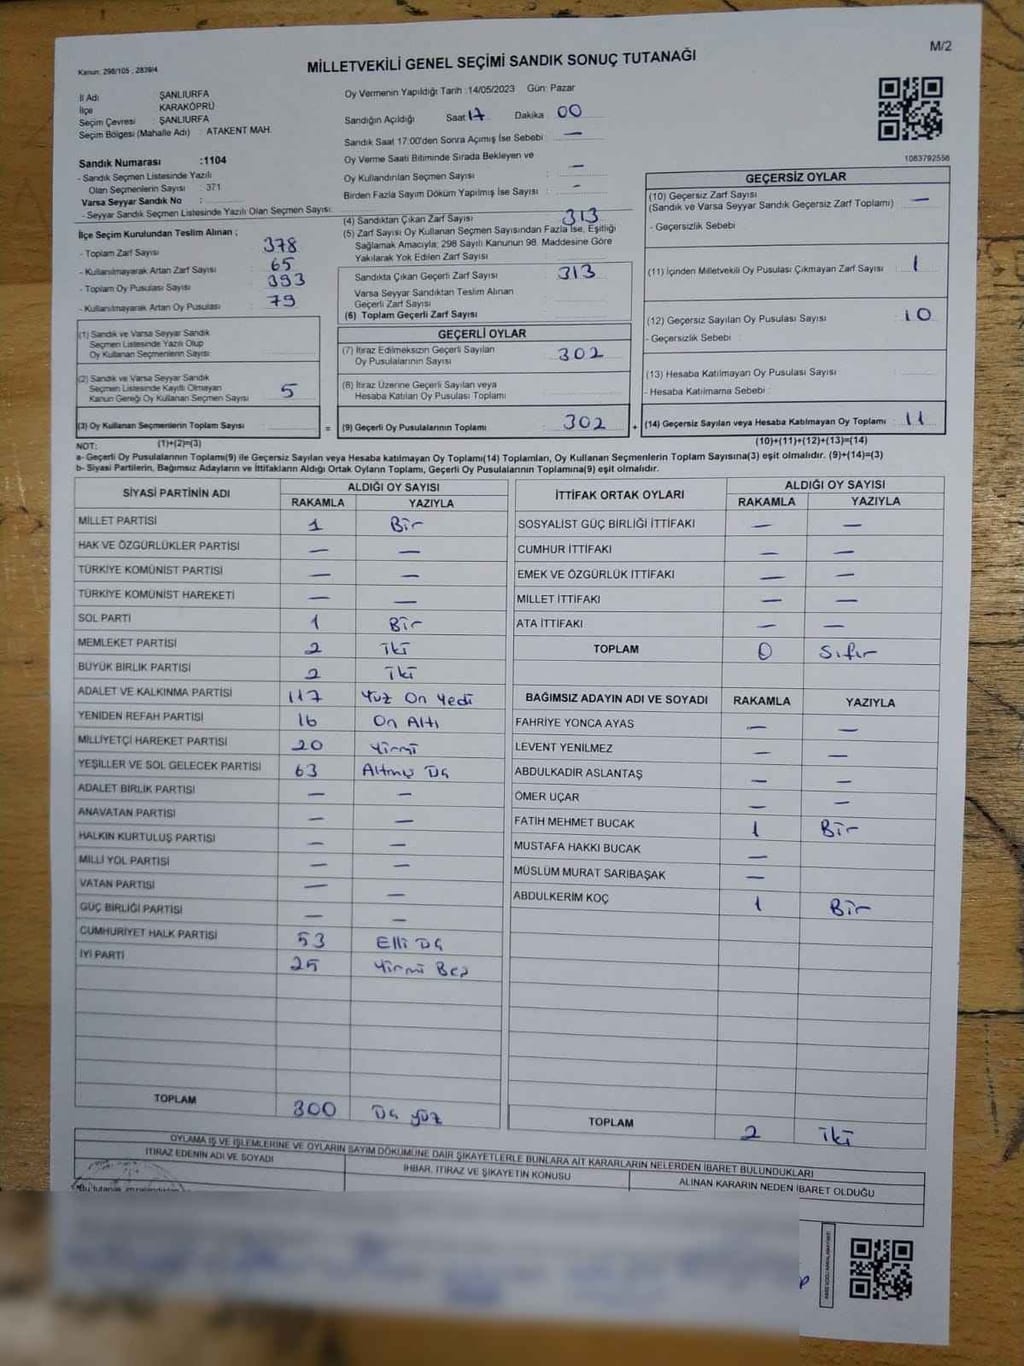 M/2
Kanun: 298/105 , 2839/4
MİLLETVEKİLİ GENEL SEÇİMİ SANDIK SONUÇ TUTANAĞI
İl Adı ŞANLIURFA
İlçe KARAKÖPRÜ
Seçim Çevresi : ŞANLIURFA
Seçim Bölgesi (Mahalle Adı) : ATAKENT MAH.
Sandık Numarası :1104
- Sandık Seçmen Listesinde Yazılı
Olan Seçmenlerin Sayısı : 371
Varsa Seyyar Sandık No :
- Seyyar Sandık Seçmen Listesinde Yazılı Olan Seçmen Sayısı:
İlçe Seçim Kurulundan Teslim Alınan ;
- Toplam Zarf Sayısı 378
- Kullanılmayarak Artan Zarf Sayısı : 65
- Toplam Oy Pusulası Sayısı : 393
- Kullanılmayarak Artan Oy Pusulası : 79
(1) Sandık ve Varsa Seyyar Sandık
Seçmen Listesinde Yazılı Olup
Oy Kullanan Seçmenlerin Sayısı
(2) Sandık ve Varsa Seyyar Sandık
Seçmen Listesinde Kayıtlı Olmayan
Kanun Gereği Oy Kullanan Seçmen Sayısı : 5
(3) Oy Kullanan Seçmenlerin Toplam Sayısı :
(1)+(2)=(3)
Oy Vermenin Yapıldığı Tarih :14/05/2023 Gün: Pazar
Sandığın Açıldığı Saat 17 Dakika 00
Sandık Saat 17:00'den Sonra Açımış İse Sebebi : —
Oy Verme Saati Bitiminde Sırada Bekleyen ve
Oy Kullandırılan Seçmen Sayısı : —
Birden Fazla Sayım Döküm Yapılmış İse Sayısı : -
(4) Sandıktan Çıkan Zarf Sayısı : 313
(5) Zarf Sayısı Oy Kullanan Seçmen Sayısından Fazla İse, Eşitliği
Sağlamak Amacıyla; 298 Sayılı Kanunun 98. Maddesine Göre
Yakılarak Yok Edilen Zarf Sayısı :
Sandıkta Çıkan Geçerli Zarf Sayısı : 313
Varsa Seyyar Sandıktan Teslim Alınan
Geçerli Zarf Sayısı :
(6) Toplam Geçerli Zarf Sayısı :
GEÇERLİ OYLAR
(7) İtiraz Edilmeksizin Geçerli Sayılan
Oy Pusulalarının Sayısı : 302
(8) İtiraz Üzerine Geçerli Sayılan veya
Hesaba Katılan Oy Pusulası Toplamı :
= (9) Geçerli Oy Pusulalarının Toplamı : 302 +
1083792556
GEÇERSİZ OYLAR
(10) Geçersiz Zarf Sayısı
(Sandık ve Varsa Seyyar Sandık Geçersiz Zarf Toplamı) : —
- Geçersizlik Sebebi :
(11) İçinden Milletvekili Oy Pusulası Çıkmayan Zarf Sayısı : 1
(12) Geçersiz Sayılan Oy Pusulası Sayısı : 10
- Geçersizlik Sebebi :
(13) Hesaba Katılmayan Oy Pusulası Sayısı :
- Hesaba Katılmama Sebebi :
(14) Geçersiz Sayılan veya Hesaba Katılmayan Oy Toplamı : 11
(10)+(11)+(12)+(13)=(14)
NOT:
a- Geçerli Oy Pusulalarının Toplamı(9) ile Geçersiz Sayılan veya Hesaba katılmayan Oy Toplamı(14) Toplamları, Oy Kullanan Seçmenlerin Toplam Sayısına(3) eşit olmalıdır. (9)+(14)=(3)
b- Siyasi Partilerin, Bağımsız Adayların ve İttifakların Aldığı Ortak Oyların Toplamı, Geçerli Oy Pusulalarının Toplamına(9) eşit olmalıdır.
SİYASİ PARTİNİN ADI ALDIĞI OY SAYISI
RAKAMLA YAZIYLA
MİLLET PARTİSİ 1 Bir
HAK VE ÖZGÜRLÜKLER PARTİSİ — —
TÜRKİYE KOMÜNİST PARTİSİ — —
TÜRKİYE KOMÜNİST HAREKETİ — —
SOL PARTİ 1 Bir
MEMLEKET PARTİSİ 2 iki
BÜYÜK BİRLİK PARTİSİ 2 iki
ADALET VE KALKINMA PARTİSİ 117 Yüz On Yedi
YENİDEN REFAH PARTİSİ 16 On Altı
MİLLİYETÇİ HAREKET PARTİSİ 20 Yirmi
YEŞİLLER VE SOL GELECEK PARTİSİ 63 Altmış Üç
ADALET BİRLİK PARTİSİ — —
ANAVATAN PARTİSİ — —
HALKIN KURTULUŞ PARTİSİ — —
MİLLİ YOL PARTİSİ — —
VATAN PARTİSİ — —
GÜÇ BİRLİĞİ PARTİSİ — —
CUMHURİYET HALK PARTİSİ 53 Elli Üç
İYİ PARTİ 25 Yirmi Beş
TOPLAM 300 Üç yüz
İTTİFAK ORTAK OYLARI ALDIĞI OY SAYISI
RAKAMLA YAZIYLA
SOSYALİST GÜÇ BİRLİĞİ İTTİFAKI — —
CUMHUR İTTİFAKI — —
EMEK VE ÖZGÜRLÜK İTTİFAKI — —
MİLLET İTTİFAKI — —
ATA İTTİFAKI — —
TOPLAM 0 Sıfır
BAĞIMSIZ ADAYIN ADI VE SOYADI RAKAMLA YAZIYLA
FAHRİYE YONCA AYAS — —
LEVENT YENİLMEZ — —
ABDULKADİR ASLANTAŞ — —
ÖMER UÇAR — —
FATİH MEHMET BUCAK 1 Bir
MUSTAFA HAKKI BUCAK —
MÜSLÜM MURAT SARIBAŞAK —
ABDULKERİM KOÇ 1 Bir
TOPLAM 2 iki
OYLAMA İŞ VE İŞLEMLERİNE VE OYLARIN SAYIM DÖKÜMÜNE DAİR ŞİKAYETLERLE BUNLARA AİT KARARLARIN NELERDEN İBARET BULUNDUKLARI
İTİRAZ EDENİN ADI VE SOYADI İHBAR, İTİRAZ VE ŞİKAYETİN KONUSU ALINAN KARARIN NEDEN İBARET OLDUĞU